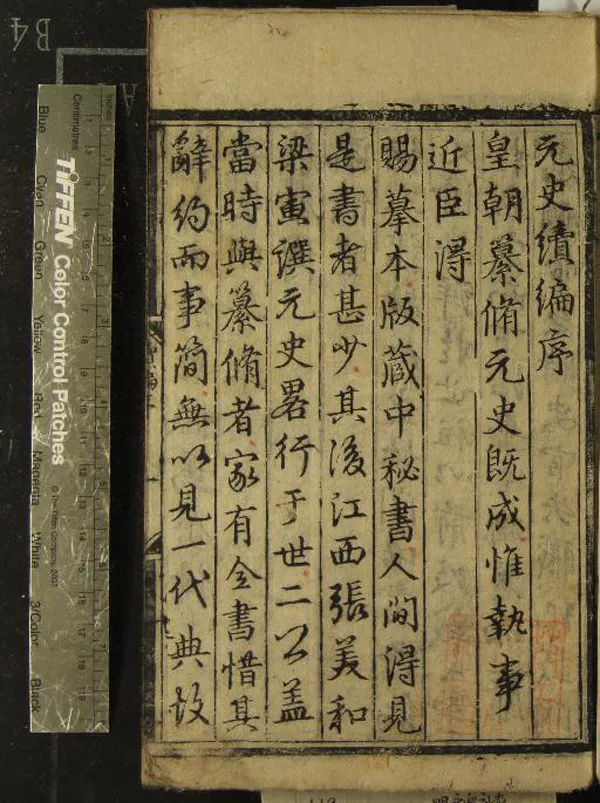 元史續編序
皇朝纂脩元史既成惟執事
近臣得
賜摹本版藏中秘書人間得見
是書者甚少其後江西張美和
梁寅譔元史畧行于世二公盖
當時與纂脩者家有全書惜其
辭約而事簡無以見一代典故
B4
A
Inches
Centimetres
TIFFEN Color Control Patches
© The Tiffen Company, 2007
Blue
Cyan
Green
Yellow
Red
Magenta
White
3/Color
Black